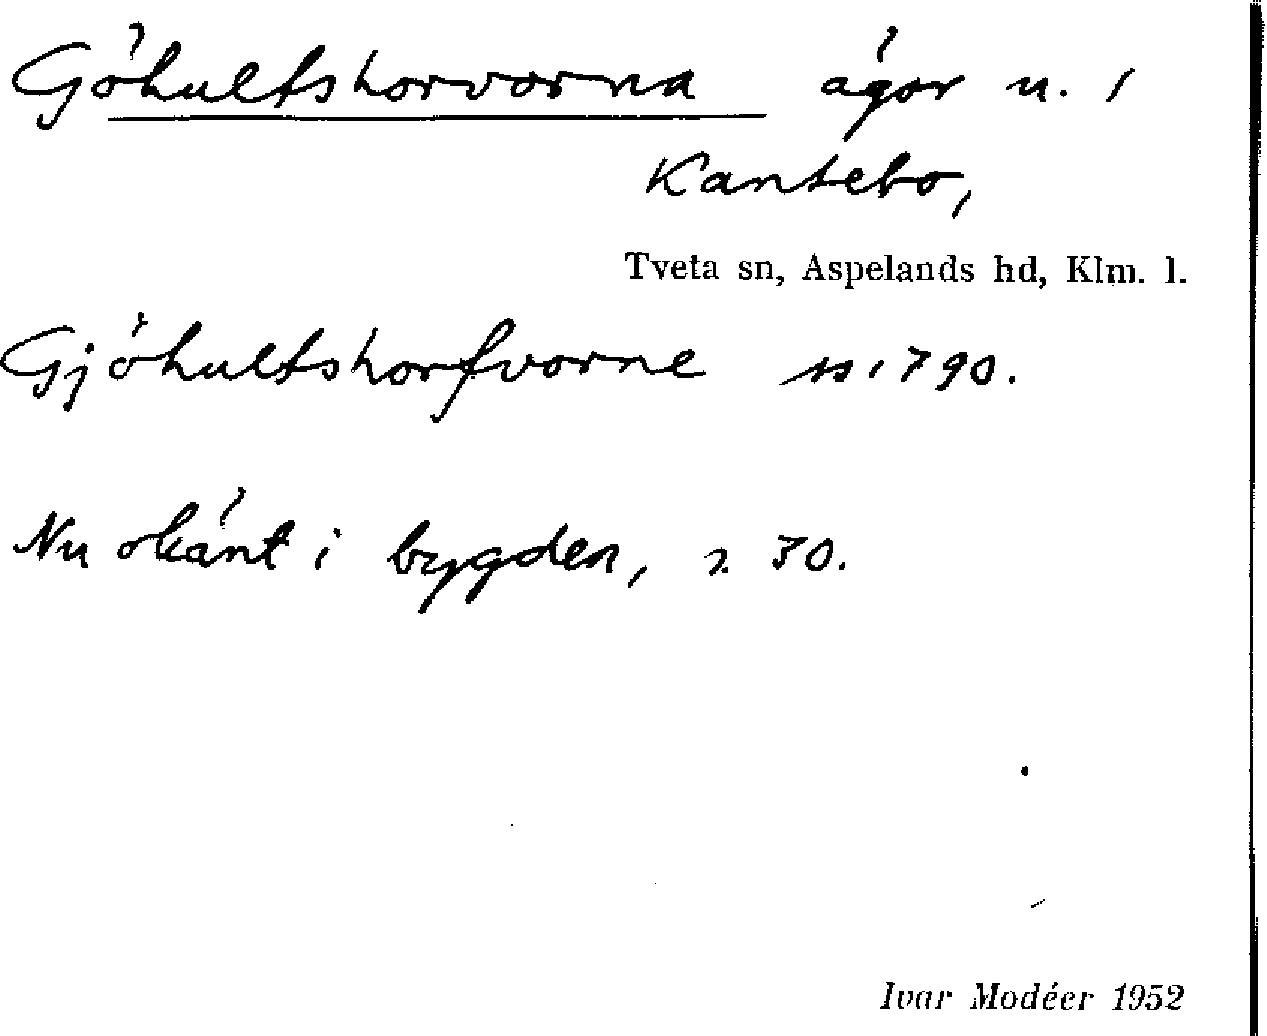 Göhultshorvorna ägor u. 1
Kantebo,
Tveta sn, Aspelands hd, Klm. l.
Gjöhultshorfvorne 1790.
Nu okänt i bygden, s. 30.
Ivar Modéer 1952